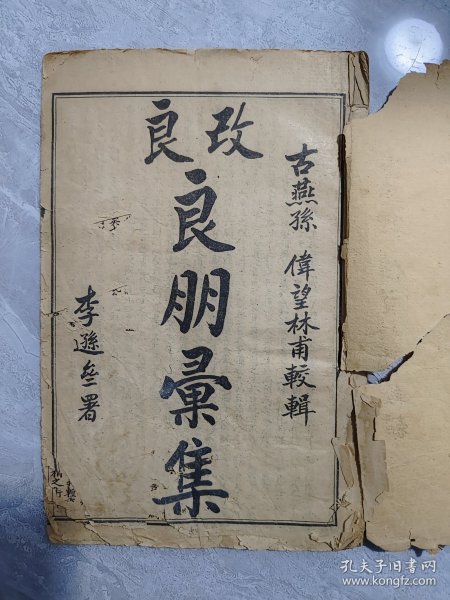 古燕孫 偉望林甫較輯
改良
良朋彙集
李遜參署
孔夫子旧书网
www.kongfz.com